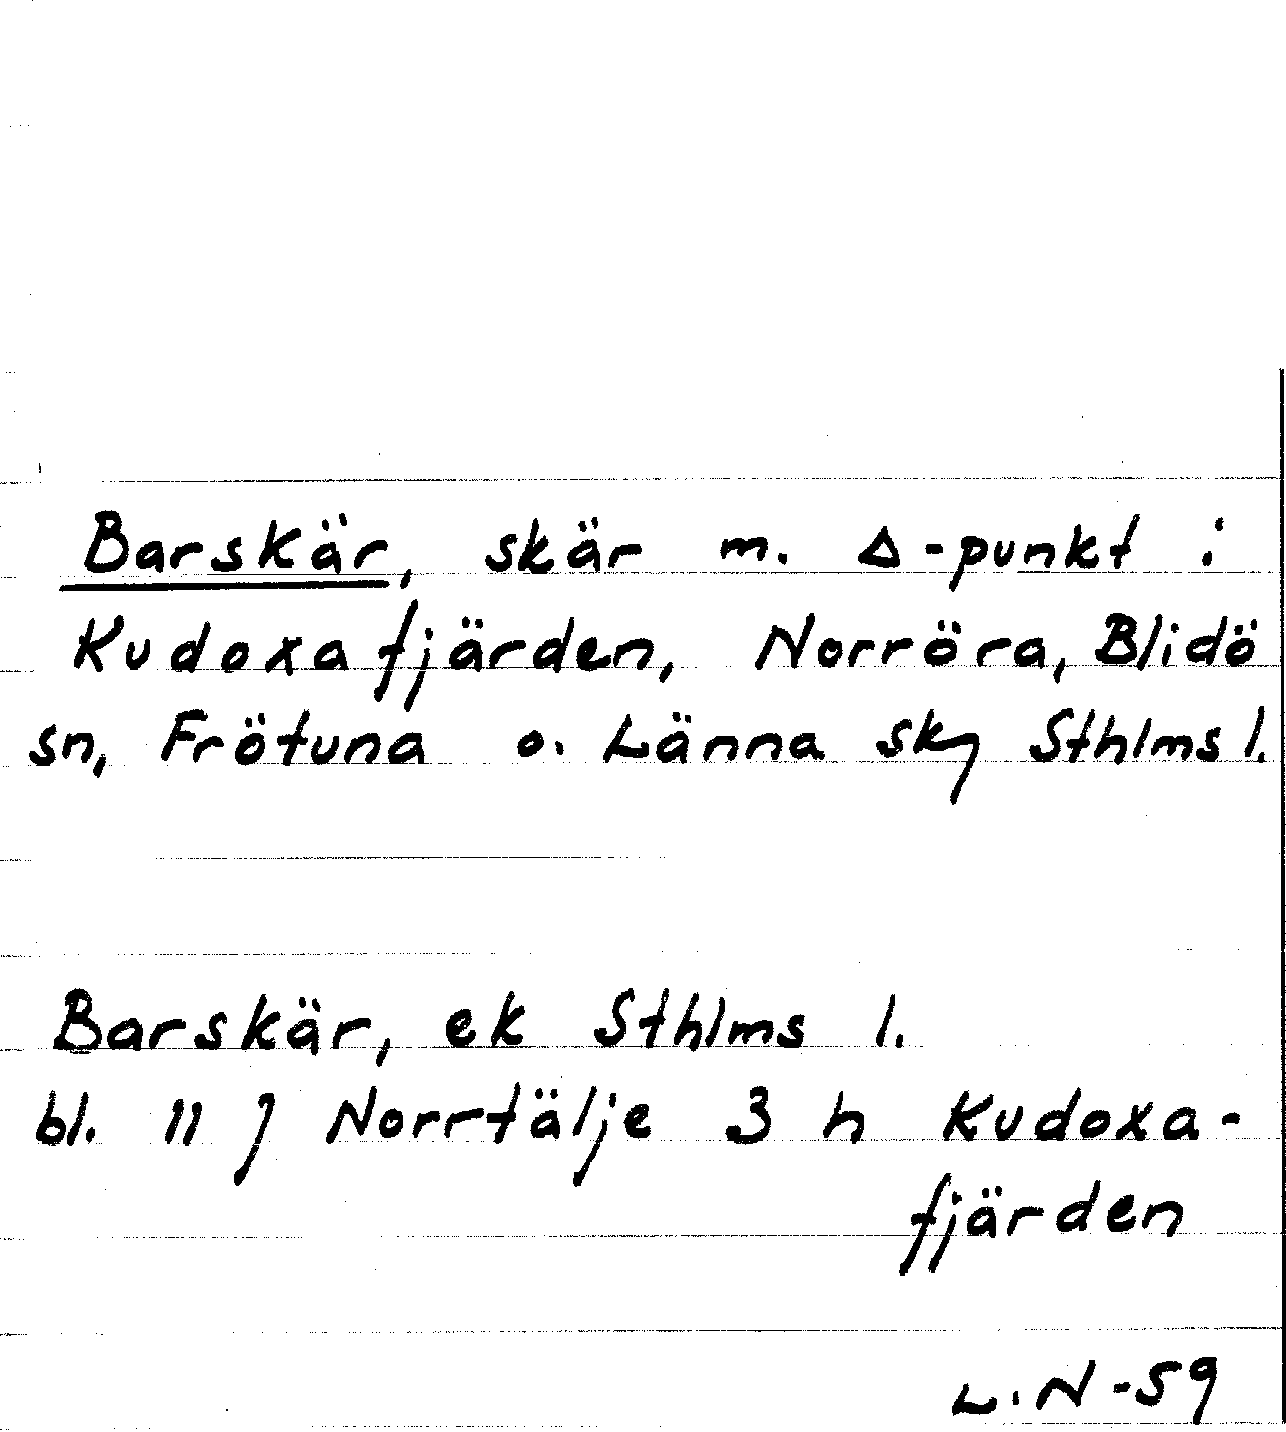 Barskär, skär m. Δ-punkt i
Kudoxafjärden, Norröra, Blidö
sn, Frötuna o. Länna skg Sthlms l.
Barskär, ek Sthlms l.
bl. 11 J Norrtälje 3 h Kudoxa-
fjärden
L.N-59